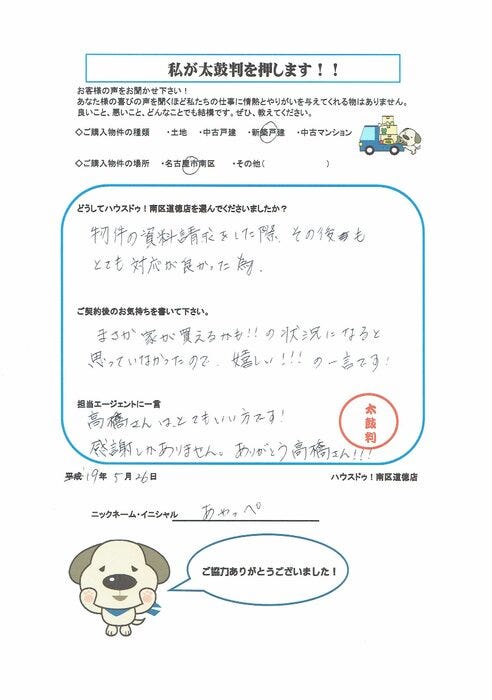 私が太鼓判を押します！！
お客様の声をお聞かせ下さい！
あなた様の喜びの声を聞くほど私たちの仕事に情熱とやりがいを与えてくれる物はありません。
良いこと、悪いこと、どんなことでも結構です。ぜひ、教えてください。
◇ご購入物件の種類　・土地　・中古戸建　・新築戸建　・中古マンション
◇ご購入物件の場所　・名古屋市南区　・その他(　　　　　　)
どうしてハウスドゥ！南区道徳店を選んでくださいましたか？
物件の資料請求をした際、その後も
とても対応が良かった為。
ご契約後のお気持ちを書いて下さい。
まさか家が買えるかも!!の状況になると
思っていなかったので、嬉しい!!!の一言です!
担当エージェントに一言
高橋さんはとてもいい方です!
感謝しかありません。ありがとう高橋さん!!!
太鼓判
平成'19年 5月 26日
ハウスドゥ！南区道徳店
ニックネーム・イニシャル　あやっぺ
ご協力ありがとうございました！